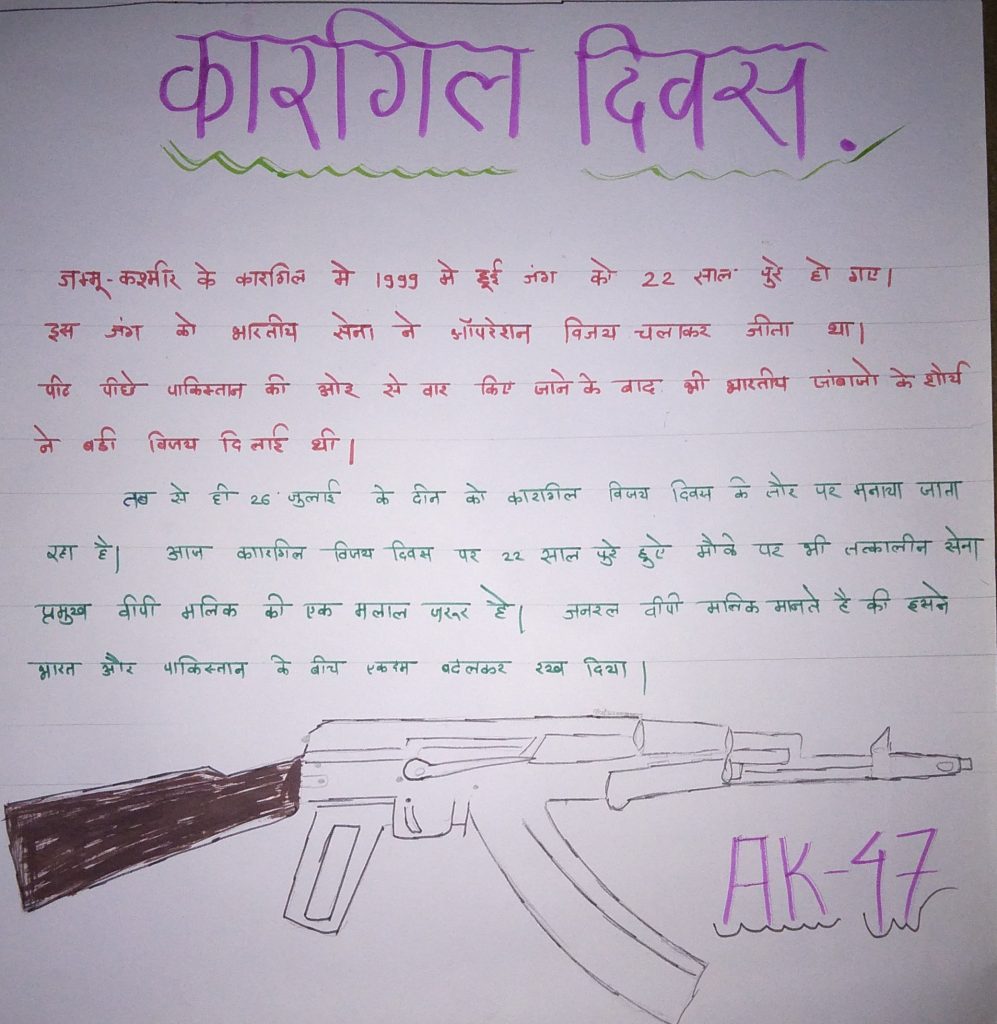 कारगिल दिवस.
जम्मू-कश्मीर के कारगिल मे 1999 मे हूई जंग को 22 साल पुरे हो गए।
इस जंग को भारतीय सेना ने ऑपरेशन विजय चलाकर जीता था।
पीट पीछे पाकिस्तान की ओर से वार किए जाने के बाद भी भारतीय जांबाजो के शौर्य
ने बडी विजय दिलाई थी।
तब से ही 26 जुलाई के दीन को कारगिल विजय दिवस के तौर पर मनाया जाता
रहा है। आज कारगिल विजय दिवस पर 22 साल पुरे हुऐ मौके पर भी तत्कालीन सेना
प्रमुख वीपी मलिक की एक मलाल जरूर है। जनरल वीपी मलिक मानते है की इसने
भारत और पाकिस्तान के बीच एकदम बदलकर रख दिया।
AK-47